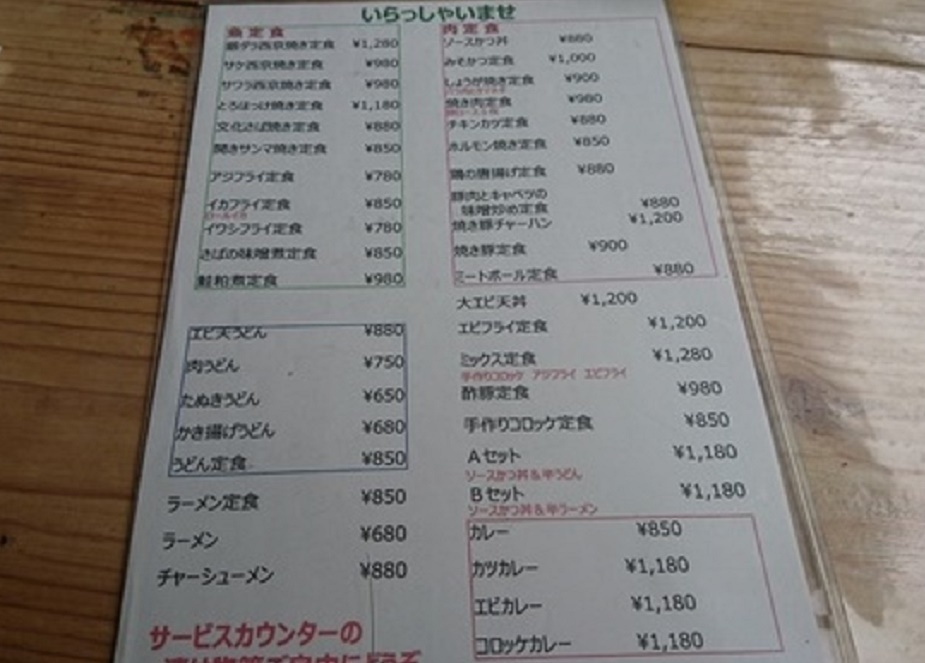 いらっしゃいませ
魚定食
銀ダラ西京焼き定食 ¥1,280
サケ西京焼き定食 ¥980
サワラ西京焼き定食 ¥980
とろほっけ焼き定食 ¥1,180
文化さば焼き定食 ¥880
開きサンマ焼き定食 ¥850
アジフライ定食 ¥780
イカフライ定食 ¥850
ロールイカ
イワシフライ定食 ¥780
さばの味噌煮定食 ¥850
鮭粕煮定食 ¥980
エビ天うどん ¥880
肉うどん ¥750
たぬきうどん ¥650
かき揚げうどん ¥680
うどん定食 ¥850
ラーメン定食 ¥850
ラーメン ¥680
チャーシューメン ¥880
サービスカウンターの
肉定食
ソースかつ丼 ¥880
みそかつ定食 ¥1,000
しょうが焼き定食 ¥900
焼き肉定食 ¥980
チキンカツ定食 ¥880
ホルモン焼き定食 ¥850
鶏の唐揚げ定食 ¥880
豚肉とキャベツの
味噌炒め定食 ¥880
焼き豚チャーハン ¥1,200
焼き豚定食 ¥900
ミートボール定食 ¥880
大エビ天丼 ¥1,200
エビフライ定食 ¥1,200
ミックス定食 ¥1,280
手作りコロッケ アジフライ エビフライ
酢豚定食 ¥980
手作りコロッケ定食 ¥850
Aセット ¥1,180
ソースかつ丼&半うどん
Bセット ¥1,180
ソースかつ丼&半ラーメン
カレー ¥850
カツカレー ¥1,180
エビカレー ¥1,180
コロッケカレー ¥1,180